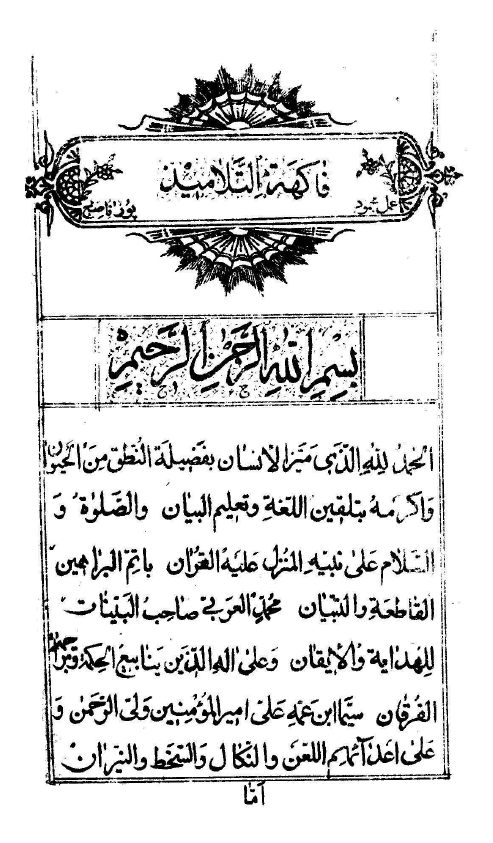 فاكهة التلاميذ
بِسْمِ اللهِ الرَّحْمنِ الرَّحِيمِ
الحمدُ للهِ الّذى مَيّز الانسان بفضيلة النّطق مِنَ الحَيَوان
وَاكرمهُ بتلقين اللغةِ وتعليم البيان والصّلوة وَ
السّلام عَلى نبيّهِ المنزل عليهِ القران باتمّ البراهين
القاطعةِ والتبيان محمّدٍ العربى صاحب البيّنات
للهداية والايقان وَعلى الهِ الّذين ينابيع الحكمة وتراجمة
الفرقان سيّما ابن عمّهِ عَلى امير المؤمنين وَلىّ الرّحمن وَ
عَلى اعدآئهم اللعن والنّكال والسّخط والنّيران
امّا